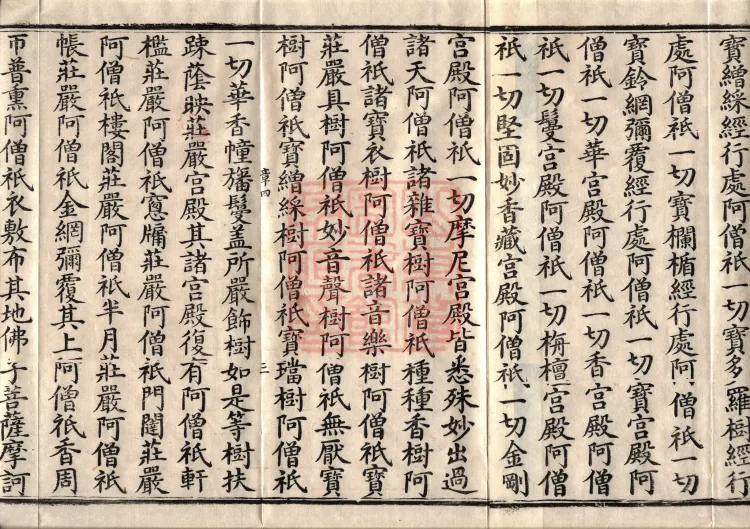 寶繒綵經行處阿僧祇一切寶多羅樹經行
處阿僧祇一切寶欄楯經行處阿僧祇一切
寶鈴網彌覆經行處阿僧祇一切寶宮殿阿
僧祇一切華宮殿阿僧祇一切香宮殿阿僧
祇一切鬘宮殿阿僧祇一切栴檀宮殿阿僧
祇一切堅固妙香藏宮殿阿僧祇一切金剛
宮殿阿僧祇一切摩尼宮殿皆悉殊妙出過
諸天阿僧祇諸雜寶樹阿僧祇種種香樹阿
僧祇諸寶衣樹阿僧祇諸音樂樹阿僧祇寶
莊嚴具樹阿僧祇妙音聲樹阿僧祇無厭寶
樹阿僧祇寶繒綵樹阿僧祇寶璫樹阿僧祇
章四 三
一切華香幢旛鬘蓋所嚴飾樹如是等樹扶
踈蔭映莊嚴宮殿其諸宮殿復有阿僧祇軒
檻莊嚴阿僧祇窻牖莊嚴阿僧祇門闥莊嚴
阿僧祇樓閣莊嚴阿僧祇半月莊嚴阿僧祇
帳莊嚴阿僧祇金網彌覆其上阿僧祇香周
帀普熏阿僧祇衣敷布其地佛子菩薩摩訶